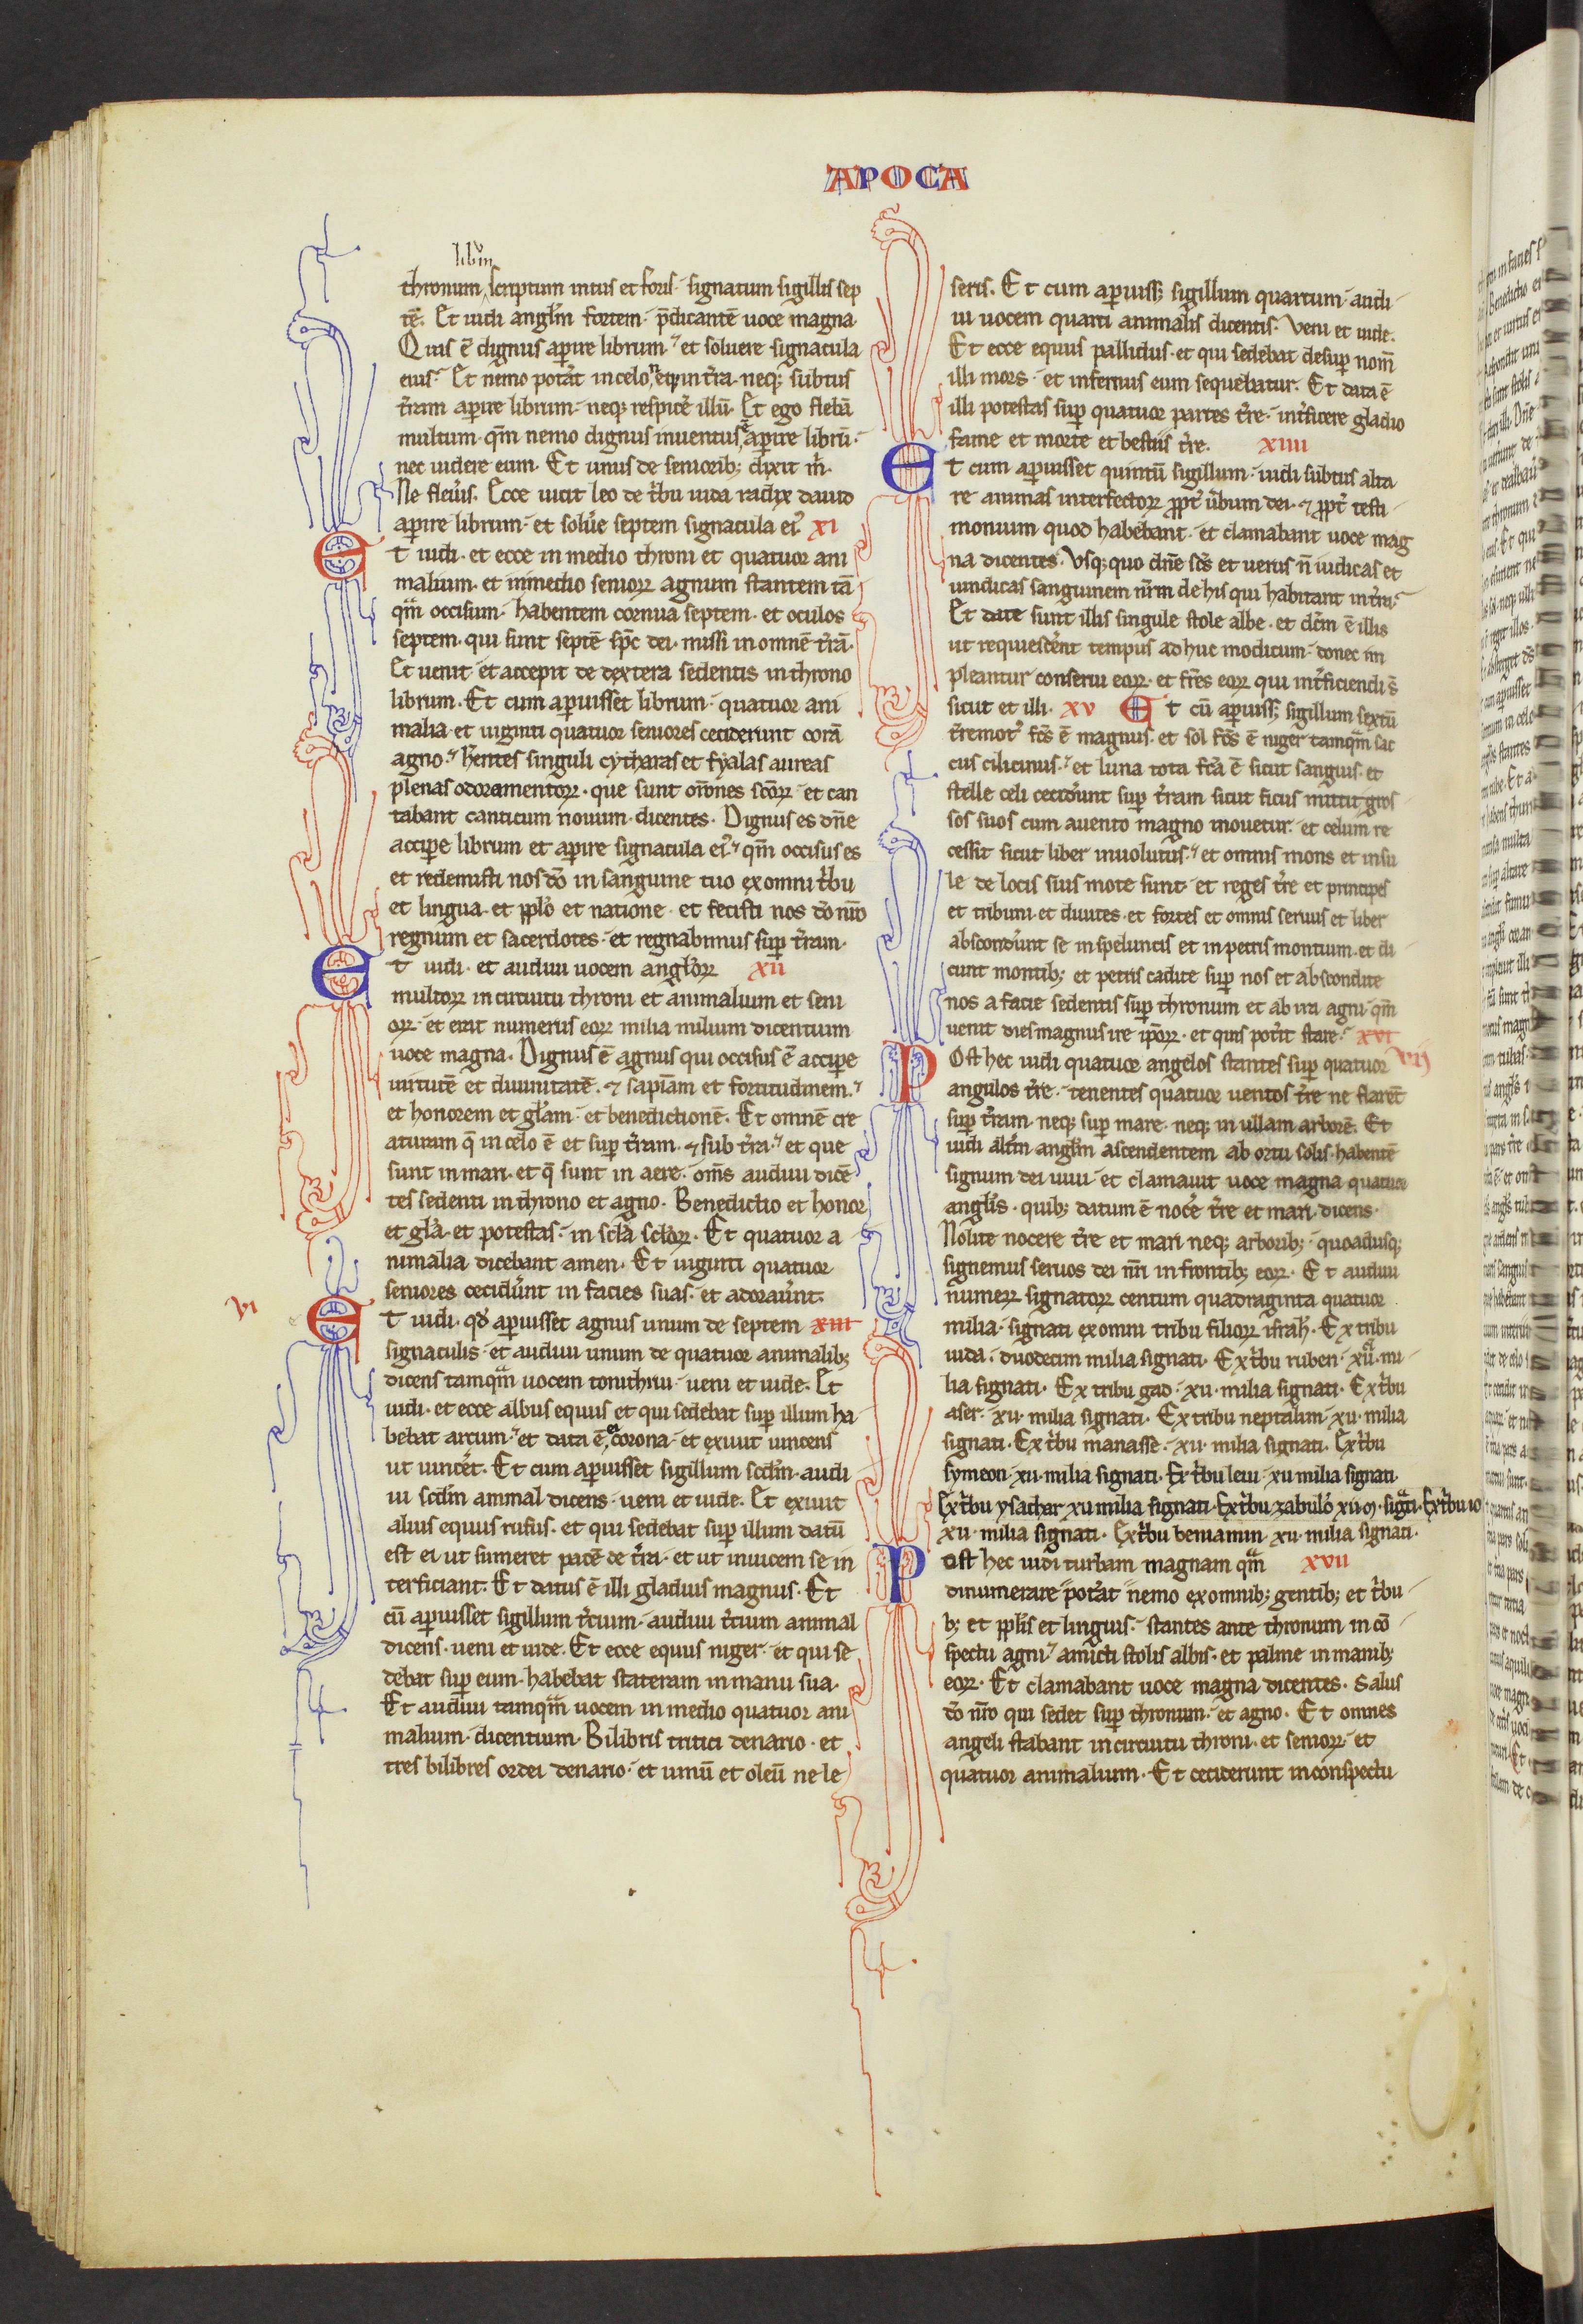 APOCA
libru̅
thronum scriptum intus et foris· signatum sigillis sep
te̅. Et uidi angl̅m fortem· p̅dicante̅ uoce magna·
Quis e̅ dignus aꝑire librum· et soluere signacula
eius· Et nemo potat̉ in celo neqꝫ in t̉ra· neqꝫ subtus
t̉ram aꝑire librum· neqꝫ respicẻ illu̅. Et ego fleba̅
multum· qm̅ nemo dignus inuentus e̅ aꝑire libru̅·
nec uidere eum. Et unus de seniorib; dixit m̉·
Ne fleủis. Ecce uicit leo de t̉bu iuda radix dauid
aꝑire librum· et solủe septem signacula ei᾽ XI
Et uidi· et ecce in medio throni et quatuor ani
malium· et in medio senioꝝ agnum stantem ta̅
qm̅ occisum· habentem cornua septem· et oculos
septem· qui sunt septe̅ sp̅c dei· missi in omne̅ t̉ra̅·
Et uenit· et accepit de dextera sedentis in throno
librum. Et cum aꝑuisset librum· quatuor ani
malia· et uiginti quatuor seniores ceciderunt cora̅
agno· hentes singuli cytharas et fyalas aureas
plenas odoramentoꝝ· que sunt or̅ones sc̅oꝝ· et can
tabant canticum nouum· dicentes. Dignus es dn̅e
acciꝑe librum et aꝑire signacula ei᾽ qm̅ occisus es
et redemisti nos do̅ in sanguine tuo ex omni t̉bu
et lingua· et pplo̅ et natione· et fecisti nos do̅ nr̅o
regnum et sacerdotes· et regnabimus suꝑ t̉ram·
Et uidi· et audiui uocem angl̅oꝝ XII
multoꝝ in circuitu throni et animalium et seni
oꝝ· et erat numerus eoꝝ milia milium dicentium
uoce magna. Dignus e̅ agnus qui occisus e̅ acciꝑe
uirtute̅ et diuinitate̅· ⁊ sapia̅m et fortitudinem·
et honorem et gl̅am· et benedictione̅. Et omne̅ cre
aturam q̅ in celo e̅ et suꝑ t̉ram· ⁊ sub t̉ra· et que
sunt in mari· et q̅ sunt in aere· om̅s audiui dice̅
tes sedenti in throno et agno. Benedictio et honor
et gl̅a· et potestas· in scl̅a scl̅oꝝ. Et quatuor a
nimalia dicebant amen. Et uiginti quatuor
seniores cecidủnt in facies suas· et adoraủnt·
VI
Et uidi· qd̅ aꝑuisset agnus unum de septem XIII
signaculis· et audiui unum de quatuor animalib;
dicens tamqm̅ uocem tonithrui· ueni et uide. Et
uidi· et ecce albus equus et qui sedebat suꝑ illum ha
bebat arcum· et data e̅ ei corona· et exiuit uincens
ut uincẻt. Et cum aꝑuisset sigillum scd̅m· audi
ui scd̅m animal dicens· ueni et uide. Et exiuit
alius equus rufus· et qui sedebat suꝑ illum datu̅
est ei ut sumeret pace̅ de t̉ra· et ut inuicem se in
terficiant. Et datus e̅ illi gladius magnus. Et
cu̅ aꝑuisset sigillum t̉cium· audiui t̉cium animal
dicens· ueni et uide. Et ecce equus niger· et qui se
debat suꝑ eum· habebat stateram in manu sua·
Et audiui tamqm̅ uocem in medio quatuor ani
malium· dicentium. Bilibris tritici denario· et
tres bilibres ordei denario· et uinu̅ et oleu̅ ne le
seris. Et cum aꝑuiss; sigillum quartum· audi
ui uocem quarti animalis dicentis· Veni et uide.
Et ecce equus pallidus· et qui sedebat desuꝑ nom̅
illi mors· et infernus eum sequebatur. Et data e̅
illi potestas suꝑ quatuor partes t̉re· int̉ficere gladio
fame et morte et bestiis t̉re. XIIII
Et cum aꝑuisset quintu̅ sigillum· uidi subtus alta
re animas interfectoꝝ ppt̉ ủbum dei· ⁊ ppt̉ testi
monium quod habebant· et clamabant uoce mag
na dicentes· Vsqꝫquo dn̅e sc̅s et uerus n̅ iudicas et
uindicas sanguinem nr̅m de his qui habitant in t̉ra·
Et date sunt illis singule stole albe· et dc̅m e̅ illis
ut requiescẻnt tempus adhuc modicum· donec im
pleantur conserui eoꝝ· et fr̅es eoꝝ qui int̉ficiendi s̅
sicut et illi· XV Et cu̅ aꝑuiss; sigillum sextu̅
t̉remot᾽ fc̅s e̅ magnus· et sol fc̅s e̅ niger tamqm̅ sac
cus cilicinus· et luna tota fc̅a e̅ sicut sanguis· et
stelle celi cecidủnt suꝑ t̉ram sicut ficus mittit gros
sos suos cum a uento magno mouetur· et celum re
cessit sicut liber inuolutus· et omnis mons et insu
le de locis suis mote sunt· et reges t̉re et principes
et tribuni et diuites· et fortes et omnis seruus et liber
abscondủnt se in speluncis et in petris montium· et di
cunt montib; et petris cadite suꝑ nos et abscondite
nos a facie sedentis suꝑ thronum et ab ira agni· qm̅
uenit dies magnus ire ip̅oꝝ· et quis potẻit stare· XVI
VII
Post hec uidi quatuor angelos stantes suꝑ quatuor
angulos t̉re· tenentes quatuor uentos t̉re ne flare̅t
suꝑ t̉ram neqꝫ suꝑ mare· neqꝫ in ullam arbore̅. Et
uidi alt̉m angl̅m ascendentem ab ortu solis habente̅
signum dei uiui· et clamauit uoce magna quatuor
angl̅is· quib; datum e̅ nocẻ t̉re et mari dicens·
Nolite nocere t̉re et mari neqꝫ arborib;· quoadusqꝫ
signemus seruos dei nr̅i in frontib; eoꝝ. Et audiui
numeꝝ signatoꝝ centum quadraginta quatuor
milia· signati ex omni tribu filioꝝ isrl̅. Ex tribu
iuda· duodecim milia signati. Ex t̉bu ruben· xii· mi
lia signati. Ex tribu gad· xii· milia signati. Ex t̉bu
aser· xii· milia signati. Ex tribu neptalim· xii· milia
signati. Ex t̉bu manasse· xii· milia signati. Ex t̉bu
symeon· xii· milia signati. Ex t̉bu leui· xii milia signati·
Ex t̉bu ysachar xii milia signati· Ex t̉bu zabulo̅ xii m· sig̅ati· Ex t̉bu io
xii· milia signati· Ex t̉bu beniamin· xii· milia signati·
Post hec uidi turbam magnam qm̅ XVII
dinumerare potat̉ nemo ex omnib; gentib; et t̉bu
b; et pplis et linguis· stantes ante thronum in co̅
spectu agni· amicti stolis albis· et palme in manib;
eoꝝ· Et clamabant uoce magna dicentes· Salus
do̅ nr̅o qui sedet suꝑ thronum· et agno. Et omnes
angeli stabant in circuitu throni· et senioꝝ· et
quatuor animalium. Et ceciderunt in conspectu